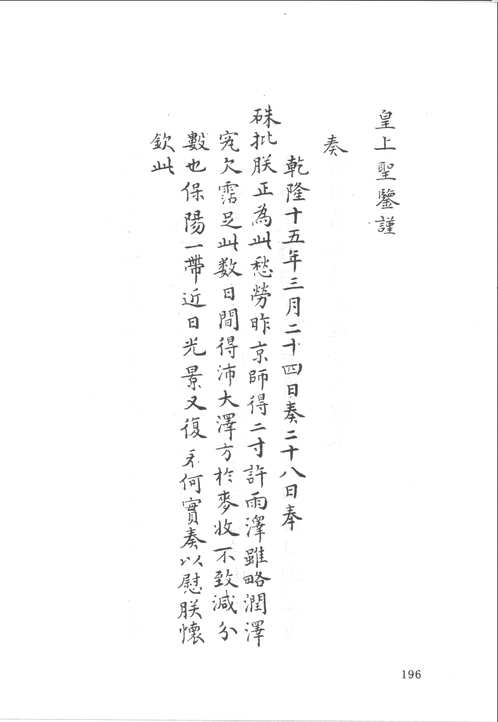 皇上聖鑒謹
奏
乾隆十五年三月二十四日奏二十八日奉
硃批朕正為此愁勞昨京師得二寸許雨澤雖略潤澤
究欠霑足此數日間得沛大澤方於麥收不致減分
數也保陽一帶近日光景又復何實奏以慰朕懷
欽此
196